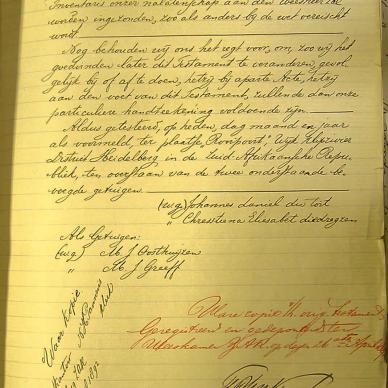 Inventaris onzer nalatenschap aan den Weesheer zal
worden ingezonden, zoo als anders bij de wet vereischt
wordt
Nog behouden wij ons het regt voor, om, zoo wij het
goedvinden later dit Testament te veranderen, daarvan
bij of af te doen, hetzij bij aparte Acte, hetzij
aan den voet van dit Testament, zullende dan onze
particuliere handteekening voldoende zijn
Aldus getesteerd, op heden, dag maand en jaar
als voormeld, ter plaatse, Wijk Kliprivier
District Heidelberg in de Zuid-Afrikaansche Repu-
bliek, ten overstaan van de twee onderstaande be-
voegde getuigen
(wg) Johannes daniel du toit
" Chrestiena Eliesabet diedregsen
Als Getuigen
(wg) M J Oosthuijzen
" M J Greeff
Waar Kopie
Ware copie v/h orig. testament
Geregistreerd en gedeponeerd ter
Weeskamer Z.A.R. op dezen 26 sten April